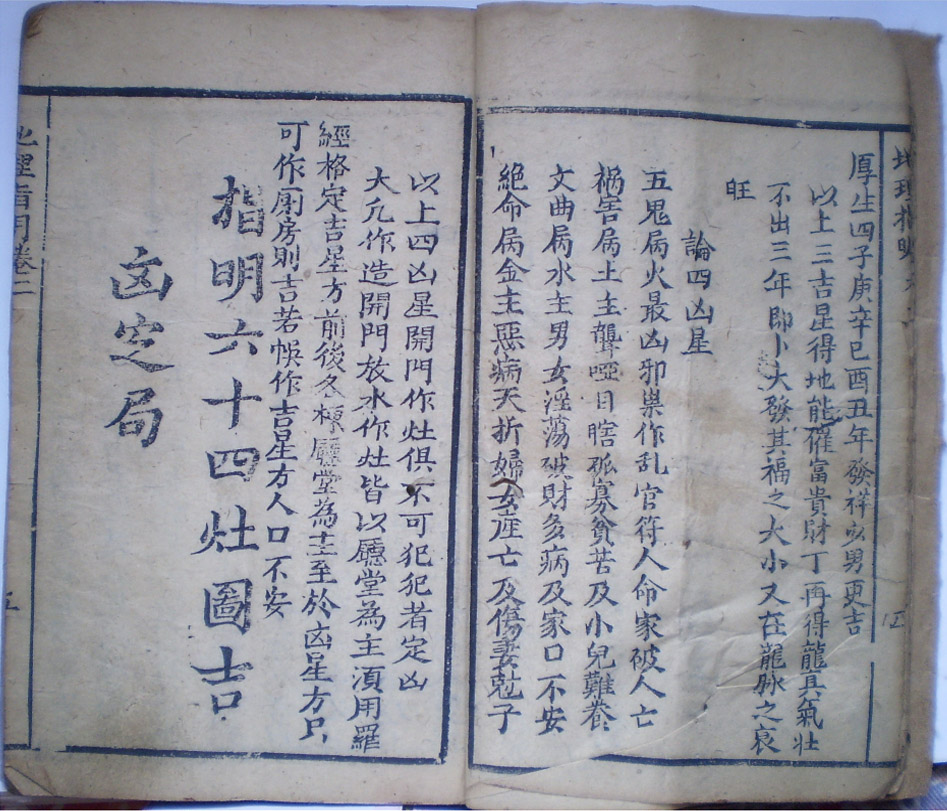 地理指明
厚生四子庚辛巳酉丑年發祥幼男更吉
以上三吉星得地能催富貴財丁再得龍真氣壯
不出三年即卜大發其福之大小又在龍脉之衰
旺
論四凶星
五鬼病火最凶邪祟作乱官符人命家破人亡
禍害病土主聾啞目瞎孤寡貧苦及小兒難養
文曲病水主男女淫蕩破財多病及家口不安
絶命病金主惡病夭折婦女産亡及傷妻尅子
以上四凶星開門作灶俱不可犯犯者定凶
大凢作造開門放水作灶皆以廳堂為主湏用羅
經格定吉星方前後各棟廳堂為主至於凶星方只
可作廁房則吉若悞作吉星方人口不安
指明六十四灶圖吉
凶定局
地理指明卷二
五